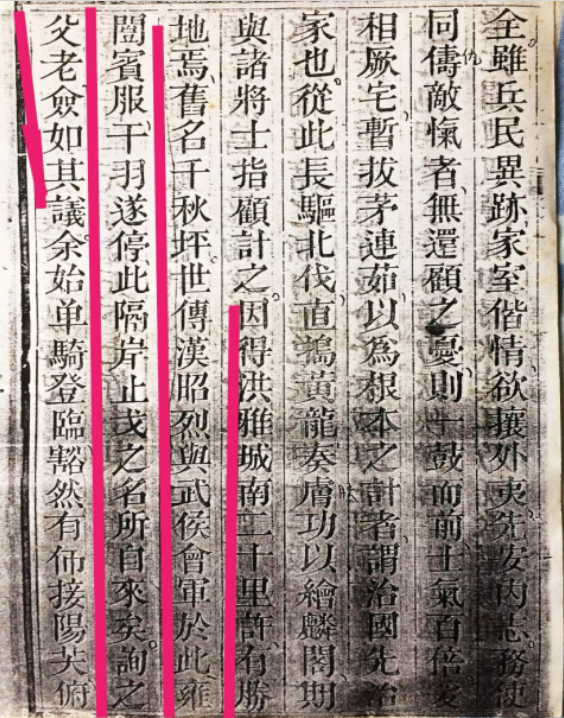 全雖兵民異跡家室偕情欲攘外夷先安内志務使
同儔敵愾者無還顧之憂則一鼓而前士氣百倍爰
仇
相厥宅暫拔茅連茹以爲根本之計者謂治國先治
家也從此長驅北伐直搗黃龍奏膚功以繪麟閣期
與諸將士指顧計之因得洪雅城南二十里許有勝
地焉舊名千秋坪世傳漢昭烈與武侯會軍於此雍
闓賓服干羽遂停此隔岸止戈之名所自來矣詢之
父老僉如其議余始单騎登臨豁然有仰接陽俯